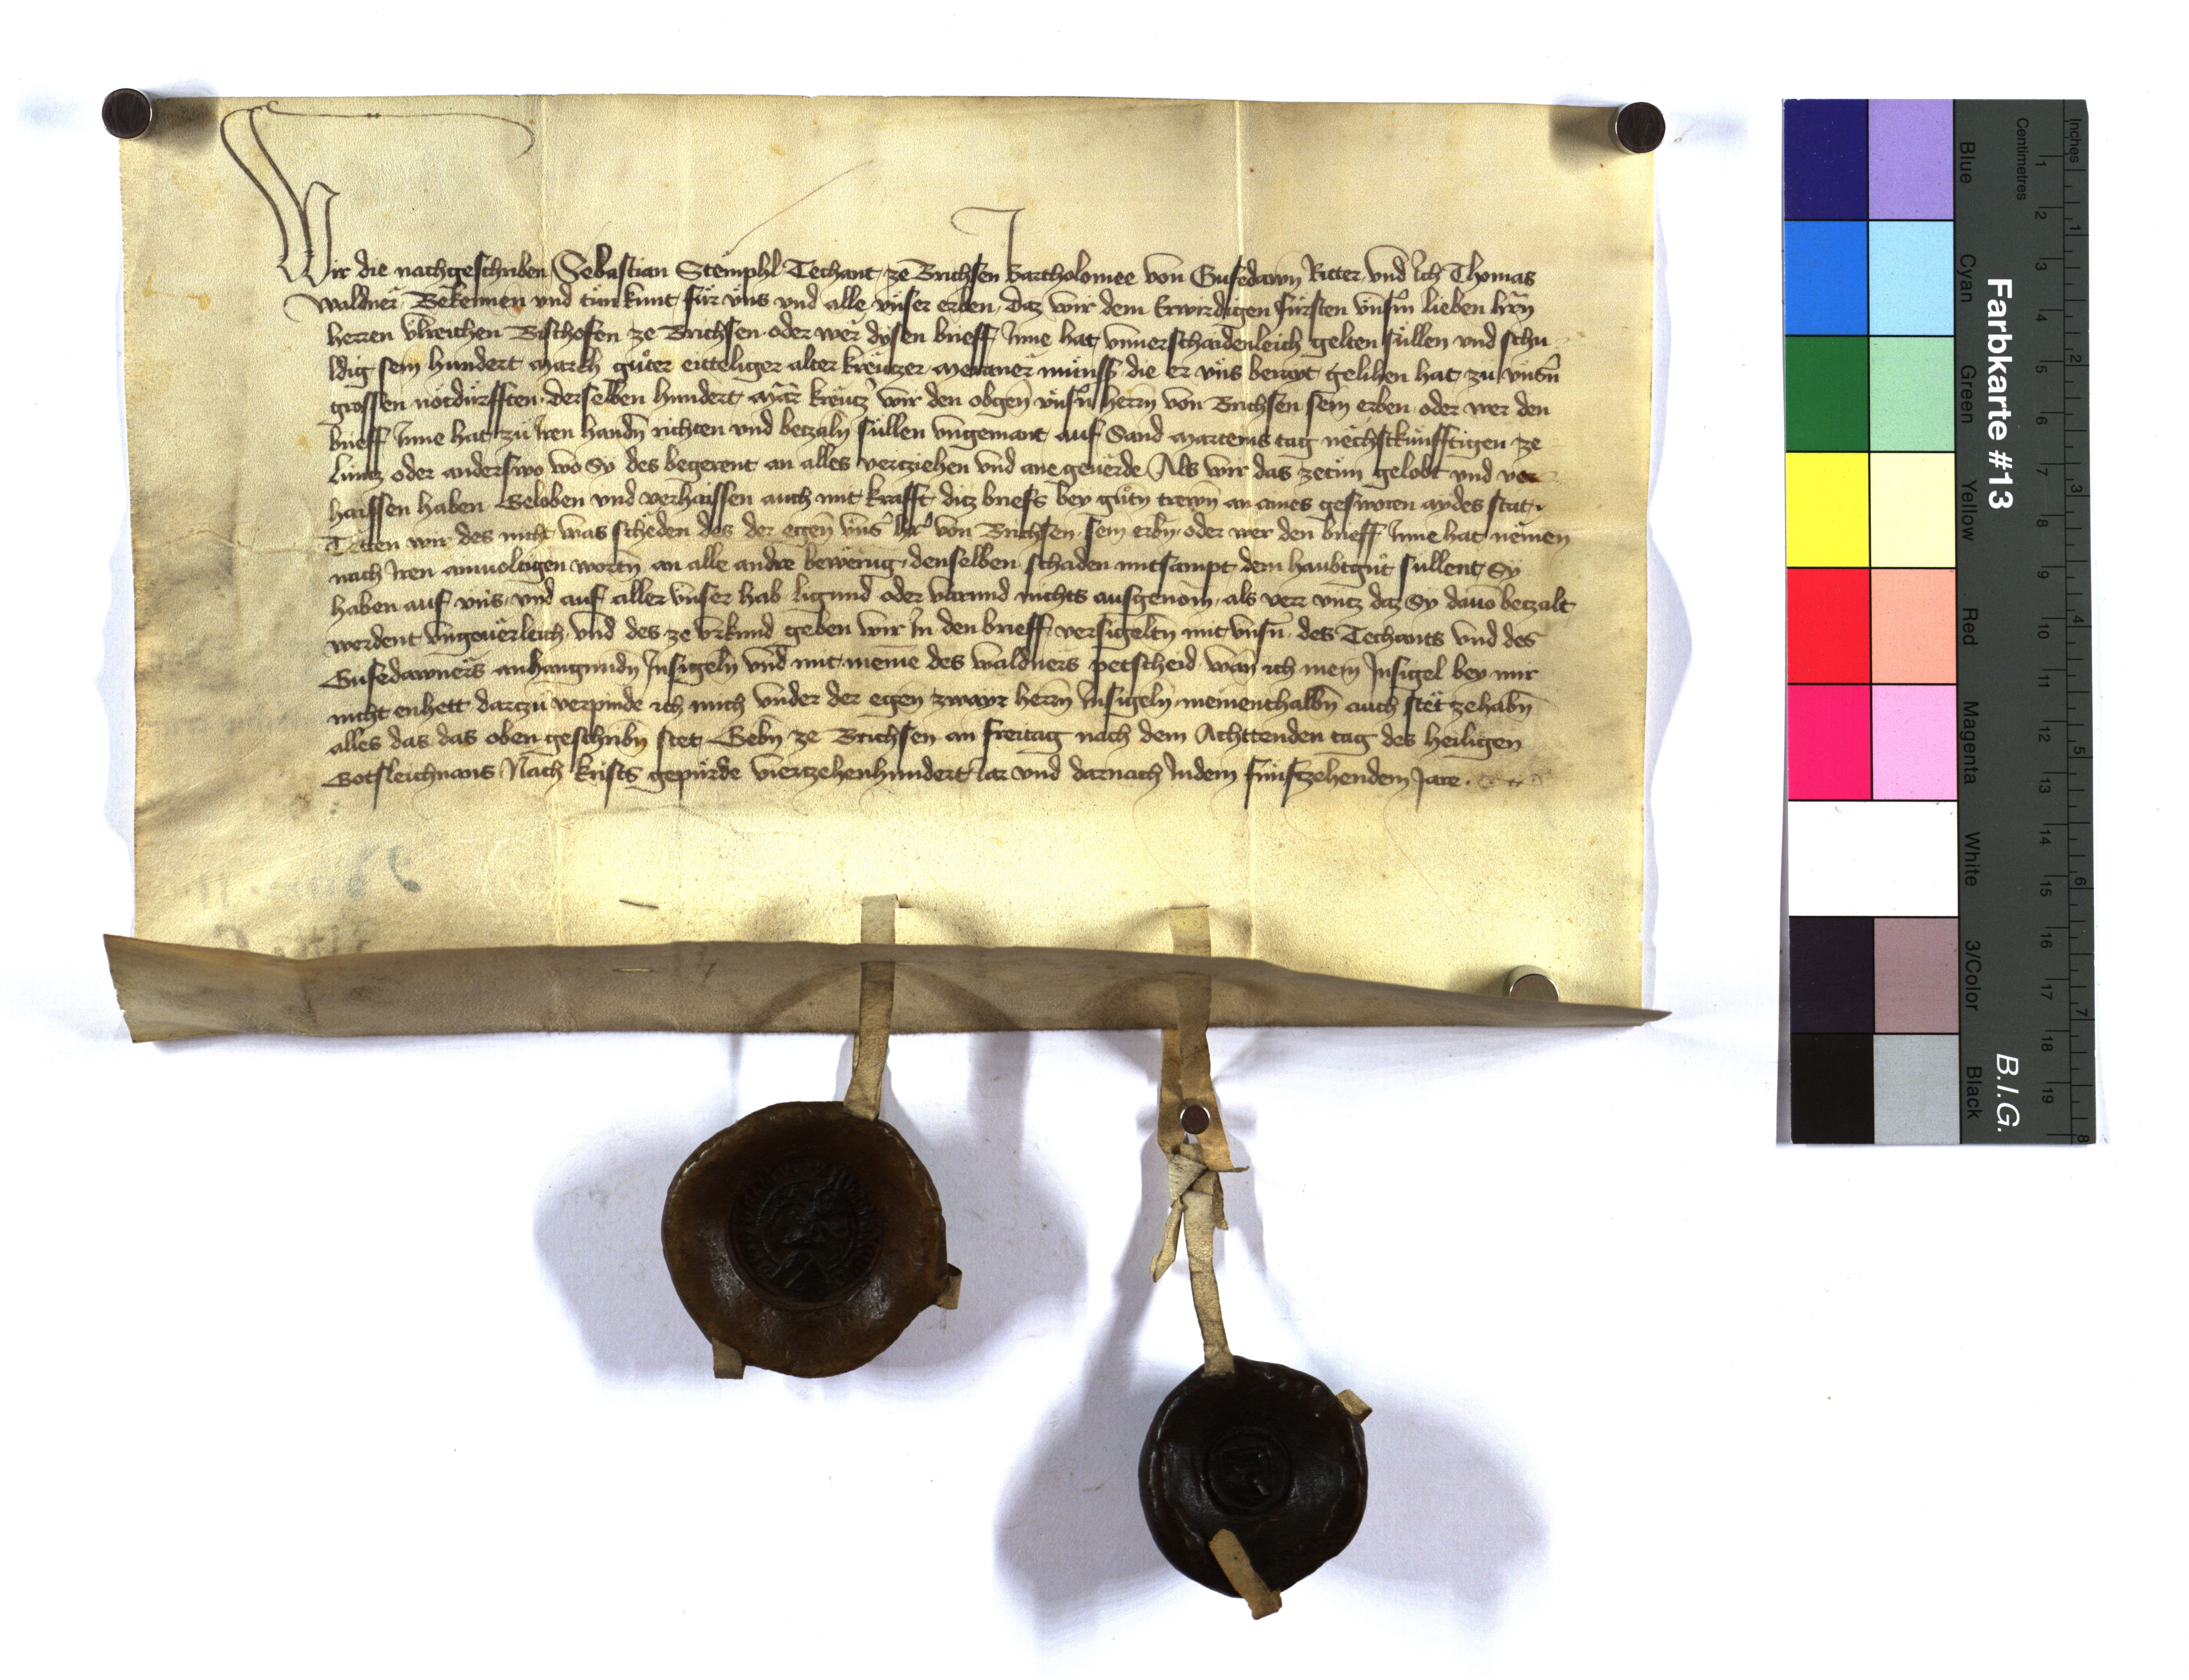 Wir die nachgeschriben Sebastian Stëmphl Techant ze Brichsen Bartholomee von Gufedawn Ritter vnd Ich Thomas
Waldner Bekennen vnd tůn kunt für vns vnd alle vnser erben, daz wir dem Erwirdigen fürsten vnsm̄ lieben hr̄n
herren vlreichen Bischofen ze Brichsen oder wer disen brieff Inne hat vnuerschaidenleich gelten süllen vnd schu
ldig sein hundert march gůter eitteliger alter kreutzer meraner münss die er vns berayt gelihen hat zů vnsn̄
grossen notdürfften derselben hundert mar̄ kreutz̄ wir den obgen̄ vnsn̄ herrn von Brichsen sein erben oder wer den
brieff Inne hat zů Iren handn̄ richten vnd betzaln̄ süllen vngemant auf Sand marteins tag nëchstkünfftigen ze
Lüntz oder anderswo wo Sy des begerent an alles vertziehen vnd ane geuërde Als wir das zetůn gelobt vnd ver
haissen haben Geloben vnd verhaissen auch mit krafft ditz briefs bey gůtn̄ trewn̄ an aines geswōren aydes stat
Tëtten wir des nicht was schëden des der egen̄ vns̄ hr̄ von Brichsen sein erbn̄ oder wer den brieff Inne hat nëmen
nach Iren ainuoltigen wortn̄ an alle andre bewërūg denselben schaden mitsampt dem haubtgůt süllent Sy
haben auf vns vnd auf aller vnser hab ligund oder varund nichts ausgenōm als verr vntz daz Sy dauō betzalt
werdent vngeuërleich vnd des ze vrkund geben wir In den brieff versigeltn̄ mit vnsn̄ des Techants vnd des
Gufedawners anhangundn̄ Insigeln̄ vnd mit meinē des waldners petscheid wan ich mein Insigel bey mir
nicht enhett dartzů verpinde ich mich vnder der egen̄ zwayr herrn̄ Insigeln̄ meinenthalbn̄ auch stët zehabn̄
alles das das oben geschribn̄ stet Gebn̄ ze Brichsen an freitag nach dem Achttenden tag des heiligen
Gotsleichnams Nach krists gepürde viertzehenhundert Iar vnd darnach Indem fünftzehendem Jare
Farbkarte #13
B.I.G.
Inches 1 2 3 4 5 6 7 8
Centimetres 1 2 3 4 5 6 7 8 9 10 11 12 13 14 15 16 17 18 19
Blue Cyan Green Yellow Red Magenta White 3/Color Black